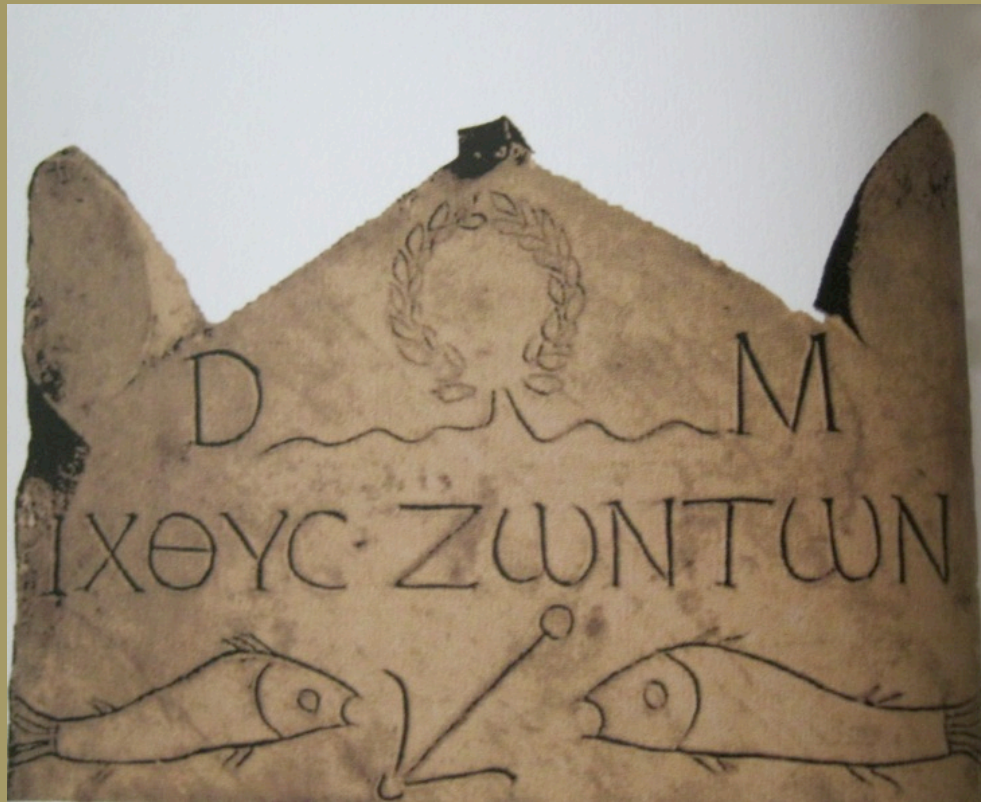 D M
ΙΧΘΥϹ ΖⲰΝΤⲰΝ